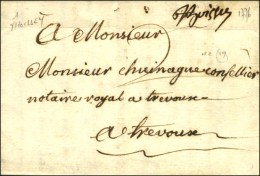 A Monsieur
Monsieur chuinague conseillier
notaire royal a trevoux
a trevoux